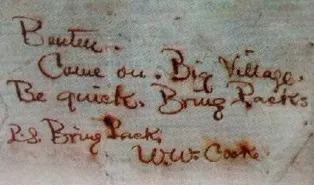 Benteen.
Come on. Big Village.
Be quick. Bring Packs
P.S. Bring Packs
W.W. Cooke